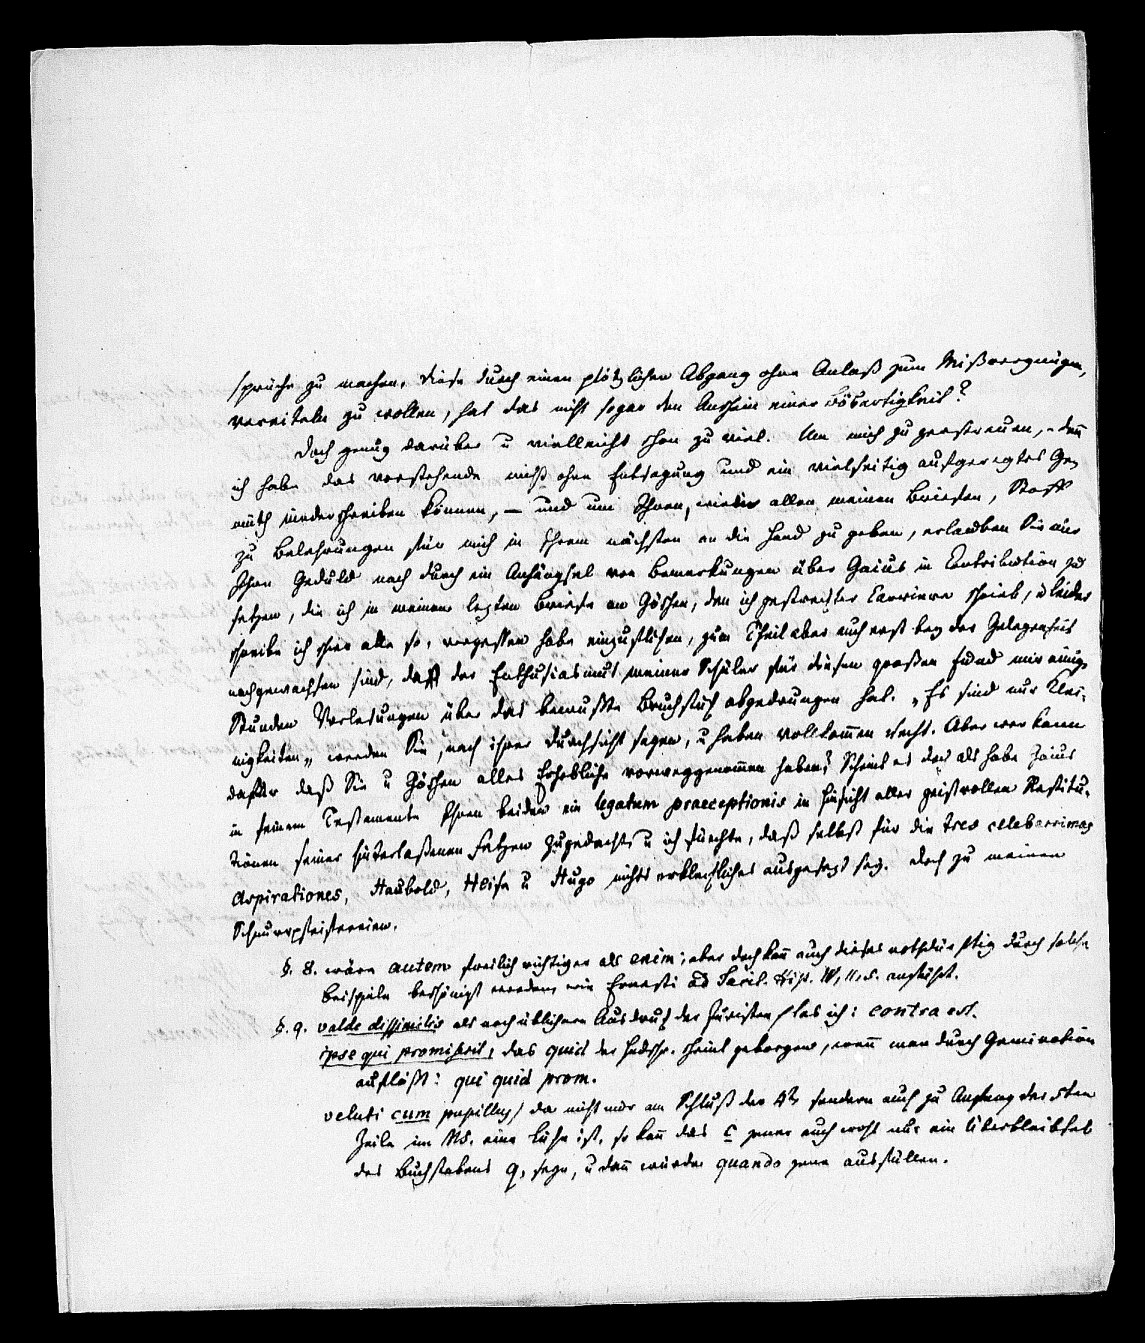 sprüche zu machen, diese durch einen plötzlichen Abgang ohne Anlaß zum Mißvergnügen,
vereiteln zu wollen, hat das nicht sogar den Anschein einer Bösartigkeit?
Doch genug darüber u vielleicht schon zu viel. Um mich zu zerstreuen, – deñ
ich habe das vorstehende nicht ohne Entsagung und ein vielseitig aufgeregtes Ge-
müth niederschreiben können, – und um Ihnen, wie in allen meinen Briefen, Stoff
zu Belehrungen für mich in Ihrem nächsten an die Hand zu geben, erlauben Sie mir
Ihre Geduld noch durch ein Anhängsel von Bemerkungen über Gaius in Contribution zu
setzen, die ich in meinem lezten Briefe an Göschen, den ich gestreckter Carriere schrieb, u leider
schreibe ich hier alle so, vergessen habe einzuflechten, zum Theil aber auch erst bey der Gelegenheit
nachgewachsen sind, daß der Enthusiasmus meiner Schüler für diesen großen Fund mir einige
Stunden Vorlesungen über das bewußte Bruchstück abgedrungen hat. „Es sind nur Klei-
nigkeiten„ werden Sie, nach ihrer Durchsicht sagen, u haben vollkom̃en Recht. Aber wer kann
dafür daß Sie u Göschen alles Erhebliche vorweggenom̃en haben? Scheint es doch als habe Gaius
in seinem Testamente Ihnen beiden ein legatum praeceptionis in Hinsicht aller geistvollen Restitu-
tionen seiner hinterlaßenen Fetzen zugedacht u ich fürchte, daß selbst für die tres celeberrimas
aspirationes, Haubold, Heise u Hugo nichts erkleckliches ausgesezt sey. Doch zu meinen
Schnurrpfeifereien.
§. 8. wäre autem freilich richtiger als enim; aber doch kañ auch dieses nothdürftig durch solche
Beispiele beschönigt werden, wie Ernesti ad Tacit. Hist. IV, 11, 5. anführt.
§. 9. valde dissimilis als noch üblichern Ausdruck der Juristen las ich: contra est.
ipse qui promiserit, das quid der Hdschr. scheint geborgen, weñ man durch Gemination
auflößt: qui quid prom.
veluti cum pupillus/ da nicht nur am Schluß der 4t sondern auch zu Anfang der 5ten
Zeile im MS. eine Lücke ist, so kañ das c gener auch wohl nur ein Überbleibsel
des Buchstabens q, seyn, u dañ würde quando gene ausfüllen.